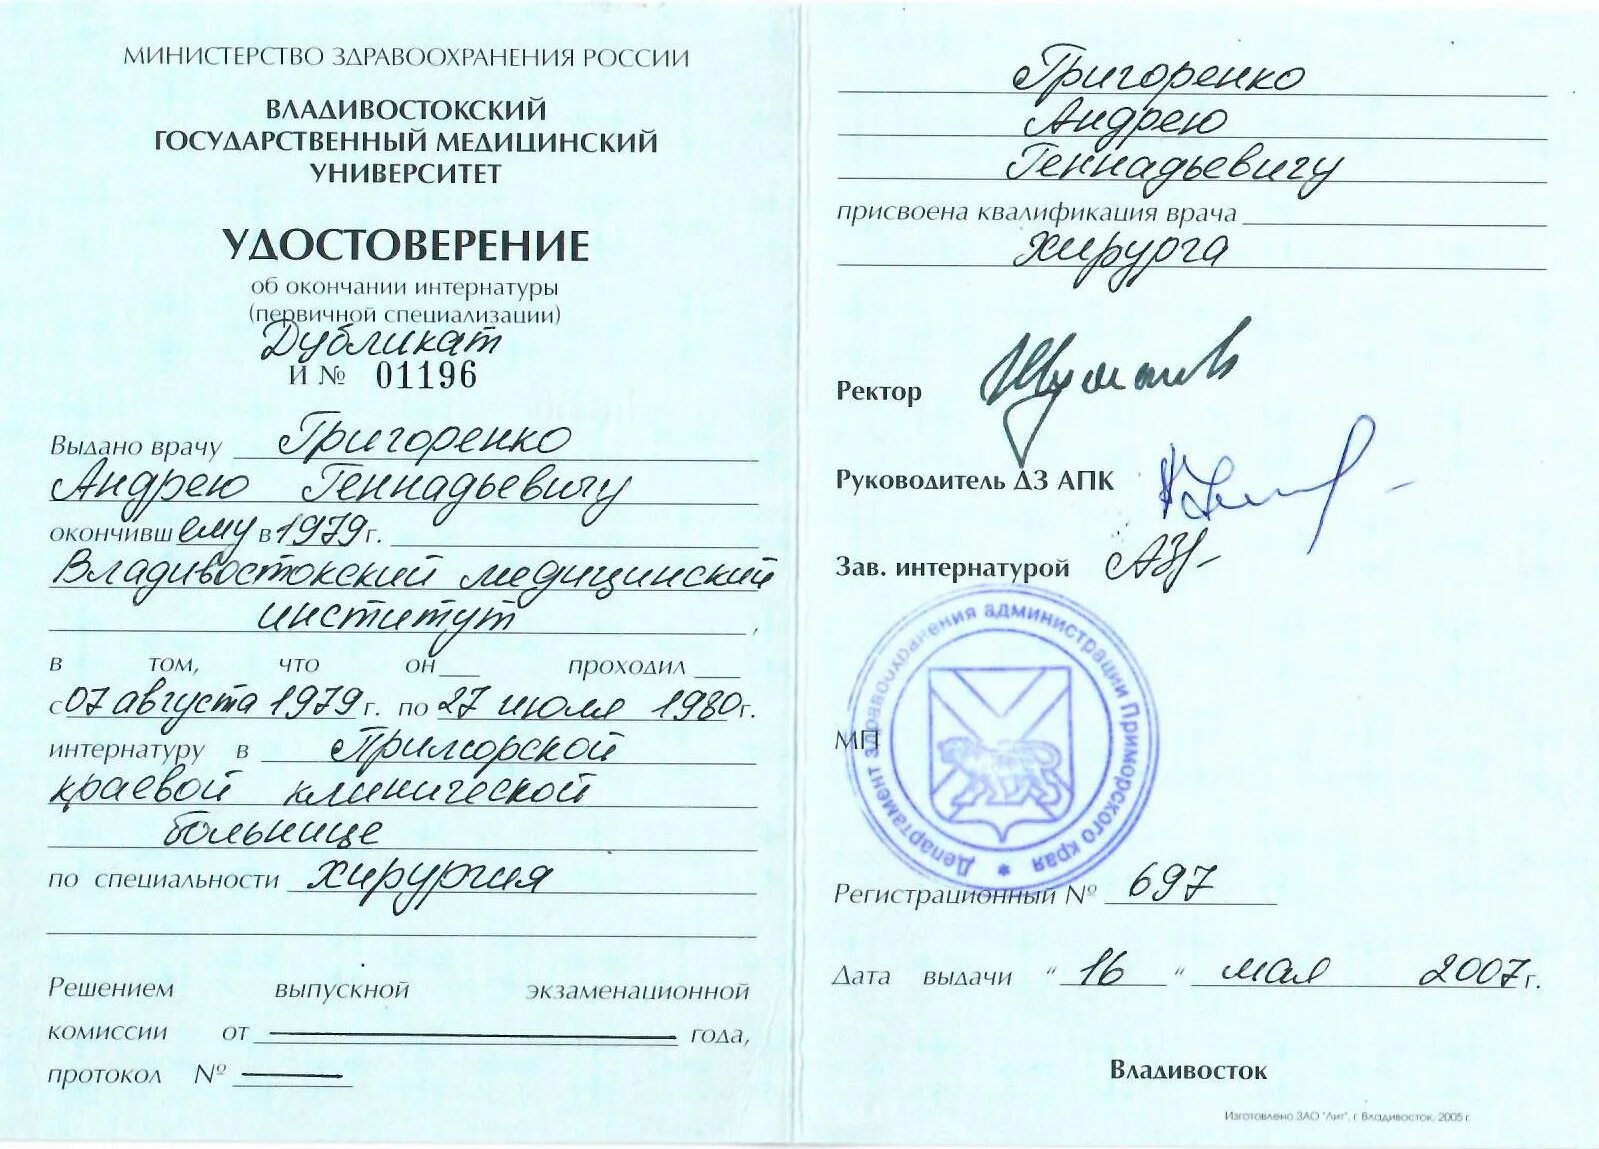 МИНИСТЕРСТВО ЗДРАВООХРАНЕНИЯ РОССИИ
ВЛАДИВОСТОКСКИЙ
ГОСУДАРСТВЕННЫЙ МЕДИЦИНСКИЙ
УНИВЕРСИТЕТ
УДОСТОВЕРЕНИЕ
об окончании интернатуры
(первичной специализации)
Дубликат
И № 01196
Выдано врачу Григоренко
Андрею Геннадьевичу
окончившему в 1979 г.
Владивостокский медицинский
институт,
в том, что он проходил
с 07 августа 1979 г. по 27 июля 1980 г.
интернатуру в Приморской
краевой клинической
больнице
по специальности хирургия
Решением выпускной экзаменационной
комиссии от года,
протокол №
Григоренко
Андрею
Геннадьевичу
присвоена квалификация врача
хирурга
Ректор
Руководитель ДЗ АПК
Зав. интернатурой
МП
Департамент здравоохранения администрации Приморского края
Регистрационный № 697
Дата выдачи " 16 " мая 2007 г.
Владивосток
Изготовлено ЗАО "Лит", г. Владивосток, 2005 г.